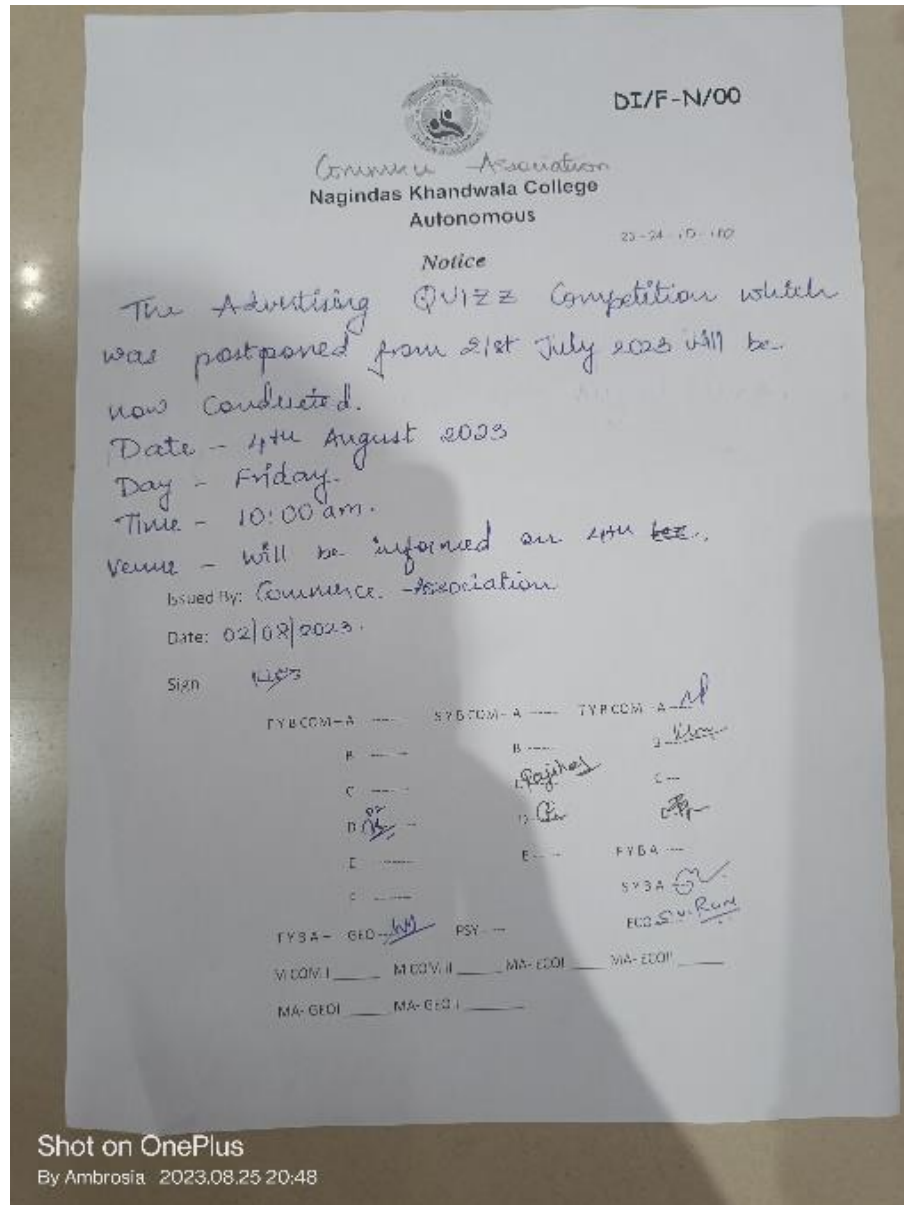 DI/F-N/00
Commerce Association
Nagindas Khandwala College
Autonomous
Notice
The Advertising QUIZZ Competition which
was postponed from 21st July 2023 will be
now conducted.
Date - 4th August 2023
Day - Friday.
Time - 10:00 am.
Venue - Will be informed on 4th
Issued By: Commerce Association
Date: 02/08/2023.
Sign
FYBCOM-A ---- SYBCOM-A ---- TYBCOM-A
B ---- B ---- B
C ---- C C --
D D D
E ---- E ---- FYBA ----
F ---- SYBA
TYBA- GEO PSY ---- ECO
M COM I ____ M COM II ____ MA-ECOI ____ MA-ECOII ____
MA-GEOI ____ MA-GEO I ____
Shot on OnePlus
By Ambrosia 2023.08.25 20:48